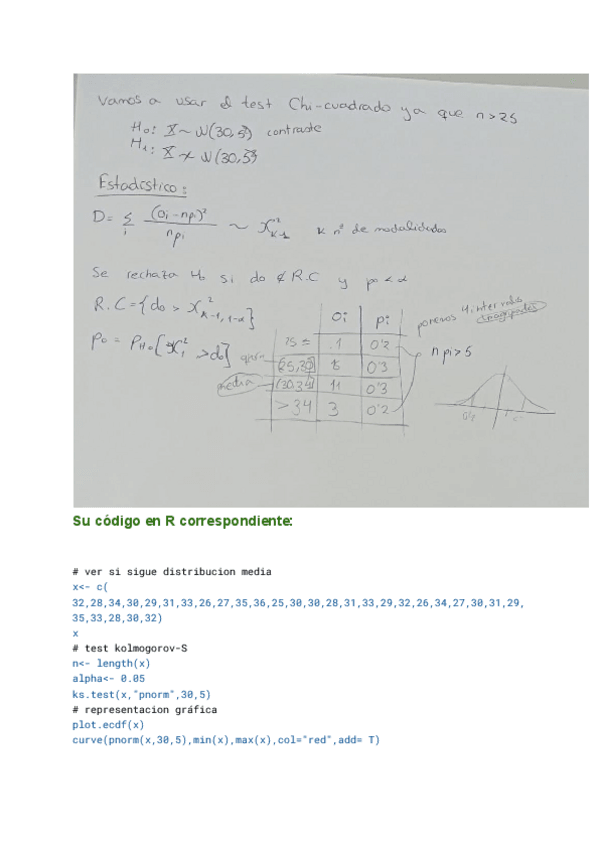 Vamos a usar el test Chi-cuadrado ya que n>25
H₀: X ~ N(30,5) contraste
H₁: X ≁ N(30,5)
Estadístico:
D= Σ i (Oi - npi)² / npi ~ χ²k-1 k nº de modalidades
Se rechaza H₀ si do ∉ R.C y po < α
R.C = {do > χ²k-1, 1-α}
Po = PH₀[χ²1 > do]
Oi pi
.1 0'2
(25,30] 0'3
media (30,34] 11 0'3
>34 3 0'2
ponemos 4 intervalos
n pi > 5
Su código en R correspondiente:
# ver si sigue distribucion media
x<- c(
32,28,34,30,29,31,33,26,27,35,36,25,30,30,28,31,33,29,32,26,34,27,30,31,29,
35,33,28,30,32)
x
# test kolmogorov-S
n<- length(x)
alpha<- 0.05
ks.test(x,"pnorm",30,5)
# representacion gráfica
plot.ecdf(x)
curve(pnorm(x,30,5),min(x),max(x),col="red",add= T)